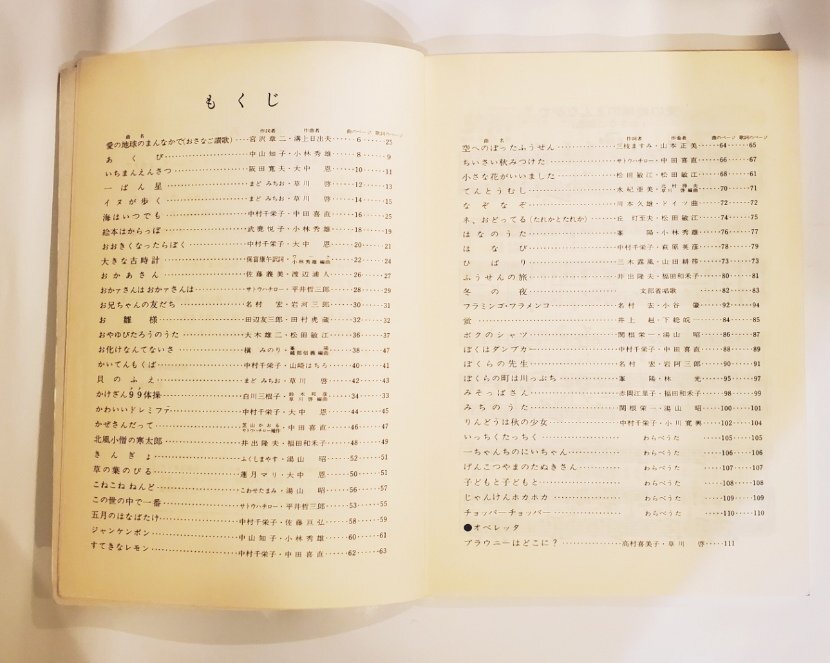 もくじ
曲名 作詞者 作曲者 曲のページ 歌詞のページ
愛の地球のまんなかで(おさなご讃歌)‥‥宮沢章二・溝上日出夫‥‥6‥‥25
あくび‥‥中山知子・小林秀雄‥‥8‥‥9
いちまんえんさつ‥‥阪田寛夫・大中恩‥‥10‥‥11
一ばん星‥‥まどみちお・草川啓‥‥12‥‥13
イヌが歩く‥‥まどみちお・草川啓‥‥14‥‥15
海はいつでも‥‥中村千栄子・中田喜直‥‥16‥‥17
絵本はからっぽ‥‥武鹿悦子・小林秀雄‥‥18‥‥19
おおきくなったらぼく‥‥中村千栄子・大中恩‥‥20‥‥21
大きな古時計‥‥保富康午訳詞・ワーク 小林秀雄編曲‥‥22‥‥24
おかあさん‥‥佐藤義美・渡辺浦人‥‥26‥‥27
おかァさんはおかァさんは‥‥サトウ・ハチロー・平井哲三郎‥‥28‥‥29
お兄ちゃんの友だち‥‥名村宏・岩河三郎‥‥30‥‥31
お雛様‥‥田辺友三郎・田村虎蔵‥‥32‥‥32
おやゆびたろうのうた‥‥大木雄二・松田敏江‥‥36‥‥37
お化けなんてないさ‥‥槇みのり・峯陽 編曲‥‥38‥‥47
かいてんもくば‥‥中村千栄子・山崎はちろ‥‥40‥‥41
貝のふえ‥‥まどみちお・草川啓‥‥42‥‥43
かけざん99体操‥‥白川三樹子・鈴木邦彦 草川啓編曲‥‥34‥‥33
かわいいドレミファ‥‥中村千栄子・大中恩‥‥44‥‥45
かぜさんだって‥‥芝山かおる サトウ・ハチロー補作・中田喜直‥‥46‥‥47
北風小僧の寒太郎‥‥井出隆夫・福田和禾子‥‥48‥‥49
きんぎょ‥‥ふくしまやす・湯山昭‥‥52‥‥51
草の葉のびる‥‥蓮月マリ・大中恩‥‥50‥‥51
こねこねねんど‥‥こわせたまみ・湯山昭‥‥56‥‥57
この世の中で一番‥‥サトウハチロー・平井哲三郎‥‥53‥‥55
五月のはなばたけ‥‥中村千栄子・佐藤亘弘‥‥58‥‥59
ジャンケンポン‥‥中山知子・小林秀雄‥‥60‥‥61
すてきなレモン‥‥中村千栄子・中田喜直‥‥62‥‥63
曲名 作詞者 作曲者 曲のページ 歌詞のページ
空へのぼったふうせん‥‥三枝ますみ・山本正美‥‥64‥‥65
ちいさい秋みつけた‥‥サトウ・ハチロー・中田喜直‥‥66‥‥67
小さな花がいいました‥‥松田敏江・松田敏江‥‥68‥‥67
てんとうむし‥‥水杞亜美・北村得夫 草川啓編曲‥‥70‥‥71
なぞなぞ‥‥川本久雄・ドイツ曲‥‥72‥‥71
ネ、おどってる(たれかとたれか)‥‥丘灯至夫・松田敏江‥‥74‥‥75
はなのうた‥‥峯陽・小林秀雄‥‥76‥‥77
はなび‥‥中村千栄子・萩原英彦‥‥78‥‥79
ひばり‥‥三木露風・山田耕筰‥‥73‥‥73
ふうせんの旅‥‥井出隆夫・福田和禾子‥‥80‥‥81
冬の夜‥‥文部省唱歌‥‥83‥‥83
フラミンゴ・フラメンコ‥‥名村宏・小谷肇‥‥92‥‥94
蛍‥‥井上赳・下総皖一‥‥84‥‥85
ボクのシャツ‥‥関根栄一・湯山昭‥‥86‥‥87
ぼくはダンプカー‥‥中村千栄子・中田喜直‥‥88‥‥89
ぼくらの先生‥‥名村宏・岩阿三郎‥‥90‥‥91
ぼくらの町は川っぷち‥‥峯陽・林光‥‥95‥‥97
みそっぱさん‥‥赤岡江里子・福田和禾子‥‥98‥‥99
みちのうた‥‥関根栄一・湯山昭‥‥100‥‥101
りんどうは秋の少女‥‥中村千栄子・小川寛興‥‥102‥‥104
いっちくたっちく‥‥わらべうた‥‥105‥‥105
一ちゃんちのにいちゃん‥‥わらべうた‥‥106‥‥106
げんこつやまのたぬきさん‥‥わらべうた‥‥107‥‥107
子どもと子どもと‥‥わらべうた‥‥108‥‥108
じゃんけんホカホカ‥‥わらべうた‥‥109‥‥109
チョッパーチョッパー‥‥わらべうた‥‥110‥‥110
●オペレッタ
ブラウニーはどこに?‥‥高村喜美子・草川啓‥‥111